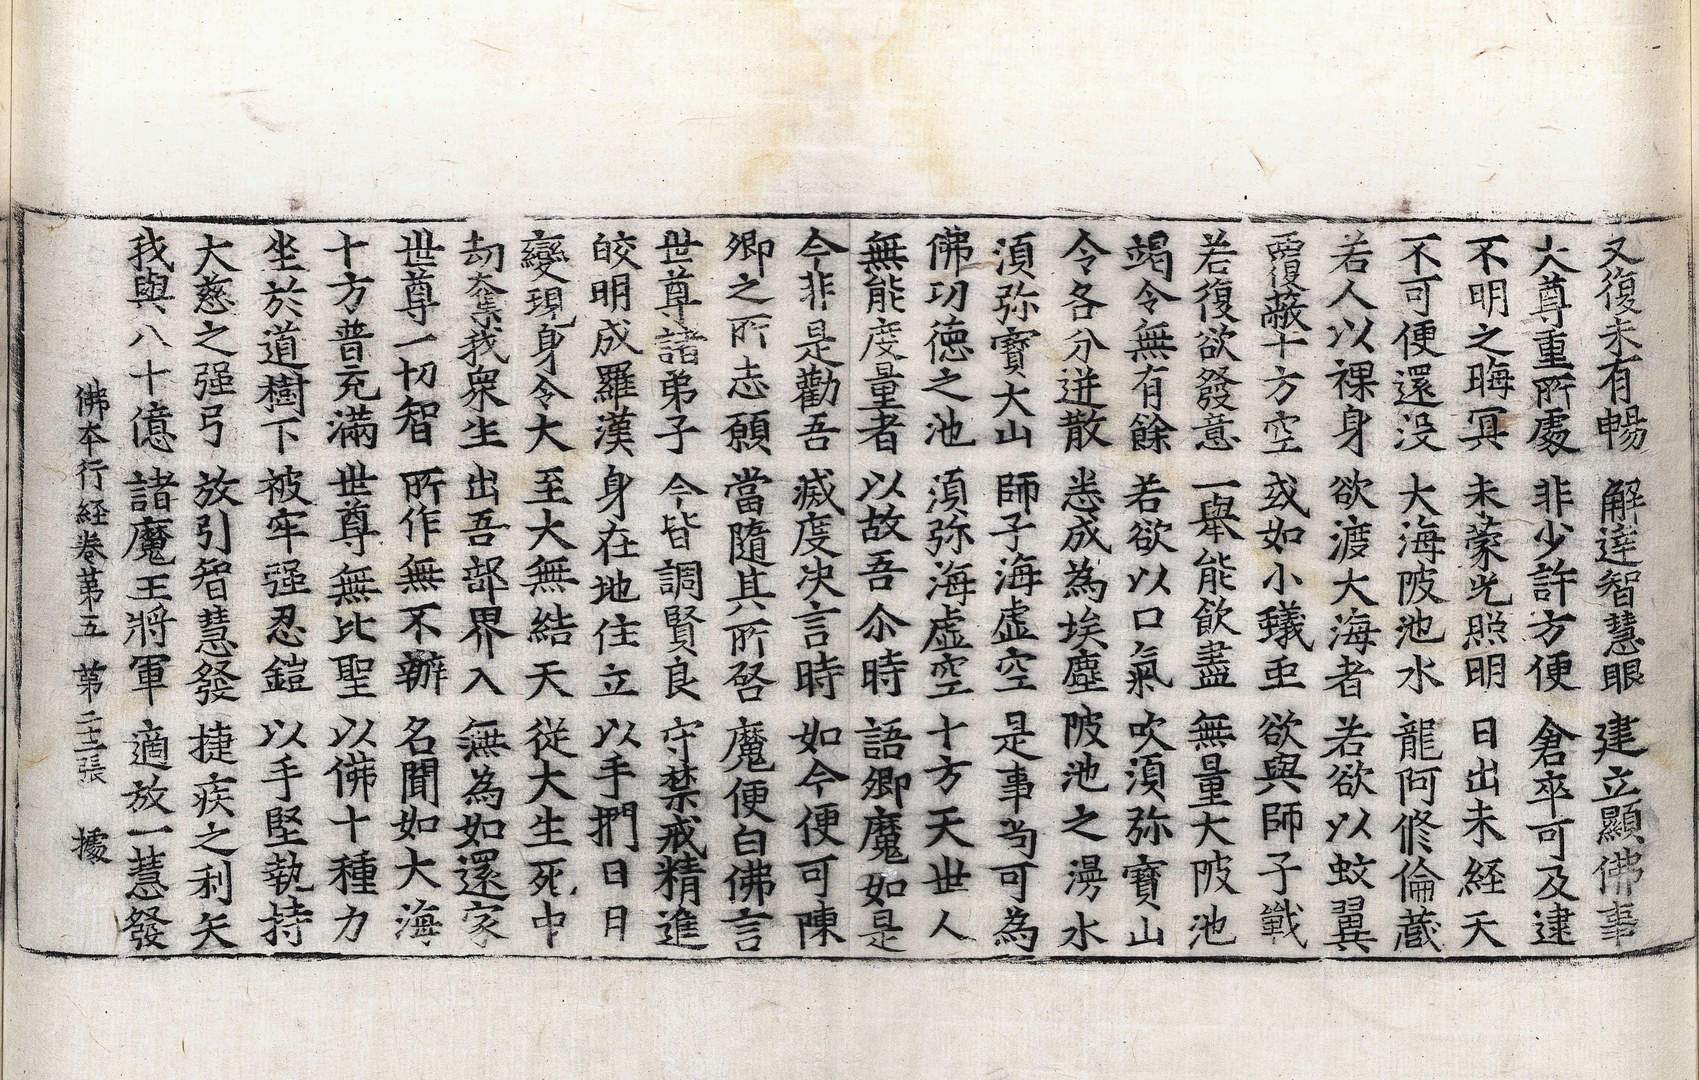 又復未有暢 解達智慧眼 建立顯佛事
大尊重所處 非少許方便 倉卒可及逮
不明之晦冥 未蒙光照明 日出未経天
不可便還没 大海陂池水 龍阿修倫藏
若人以裸身 欲渡大海者 若欲以蚊翼
覆蔽十方空 或如小蟻虫 欲與師子戰
若復欲發意 一舉能飲盡 無量大陂池
竭令無有餘 若欲以口氣 吹須弥寶山
令各分迸散 悉成為埃塵 陂池之潦水
須弥寶大山 師子海虛空 是事尚可為
佛功德之池 須弥海虛空 十方天世人
無能度量者 以故吾尒時 語卿魔如是
今非是勸吾 滅度决言時 如今便可陳
卿之所志願 當隨其所啓 魔便白佛言
世尊諸弟子 今皆調賢良 守禁戒精進
皎明成羅漢 身在地住立 以手捫日月
變現身令大 至大無結天 從大生死中
劫奪我衆生 出吾部界入 無為如還家
世尊一切智 所作無不辦 名聞如大海
十方普充滿 世尊無比聖 以佛十種力
坐於道樹下 被牢强忍鎧 以手堅執持
大慈之强弓 放引智慧發 捷疾之利矢
我與八十億 諸魔王將軍 適放一慧發
佛本行経卷第五 第二十二張 㩀